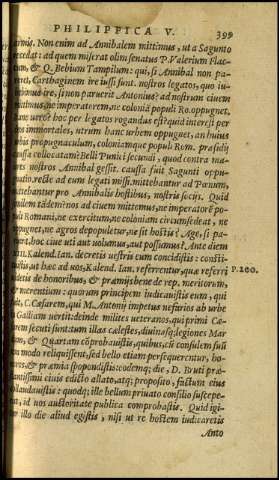 PHILIPPICA V. 399
armis. Non enim ad Annibalem mittimus, ut a Sagunto
recedat: ad quem miserat olim senatus P. Valerium Flac-
cum, & Q. Bebium Tampilum: qui, si Annibal non pa-
reret, Carthaginem ire iussi sunt. nostros legatos, quo iu-
bemus ire, si non paruerit Antonius? ad nostrum civem
mittimus, ne imperatorem, ne coloniã populi Ro. oppugnet.
hoc per legatos rogandus est? quid interest per
deos immortales, utrum hanc urbem oppugnet, an huius
urbis propugnaculum, coloniamque populi Rom. præsidij
caussa collocatam? Belli Punici secundi, quod contra ma-
iores nostros Annibal gessit, caussa fuit Sagunti oppu-
gnatio. recte ad eum legati missi. mittebantur ad Pœnum,
mittebantur pro Annibalis hostibus, nostris socijs. Quid
simile tãdem? nos ad civem mittimus, ne imperatorẽ po-
puli Romani, ne exercitum, ne coloniam circumsedeat, ne
oppugnet, ne agros depopuletur, ne sit hostis? Age, si pa-
ruerit, hoc cive uti aut volumus, aut possumus? Ante diem
Kalend. Ian. decretis vestris eum concidistis: consti-
tuistis, ut hæc ad vos, Kalend. Ian. referrentur, quæ referri
P. 200.
videtis de honoribus, & præmijs bene de rep. meritorum,
& merentium: quorum principem iudicauistis eum, qui
fuit, C. Cæsarem, qui M. Antonij impetus nefarios ab urbe
in Galliam uertit: deinde milites ueteranos, qui primi Cæ-
sarem secuti sunt: tum illas cælestes, divinasq; legiones Mar-
tiam, & Quartam cõprobauistis, quibus, cũ consulem suũ
non modo reliquissent, sed bello etiam persequerentur, ho-
nores, & præmia spopondistis: eodemq; die, D. Bruti præ-
stantissimi civis edicto allato, atq; proposito, factum eius
collaudauistis: quodq; ille bellum priuato consilio suscepe-
rat, id uos auctoritate publica comprobastis. Quid igi-
tur illo die aliud egistis, nisi ut re hostem iudicaretis
Anto